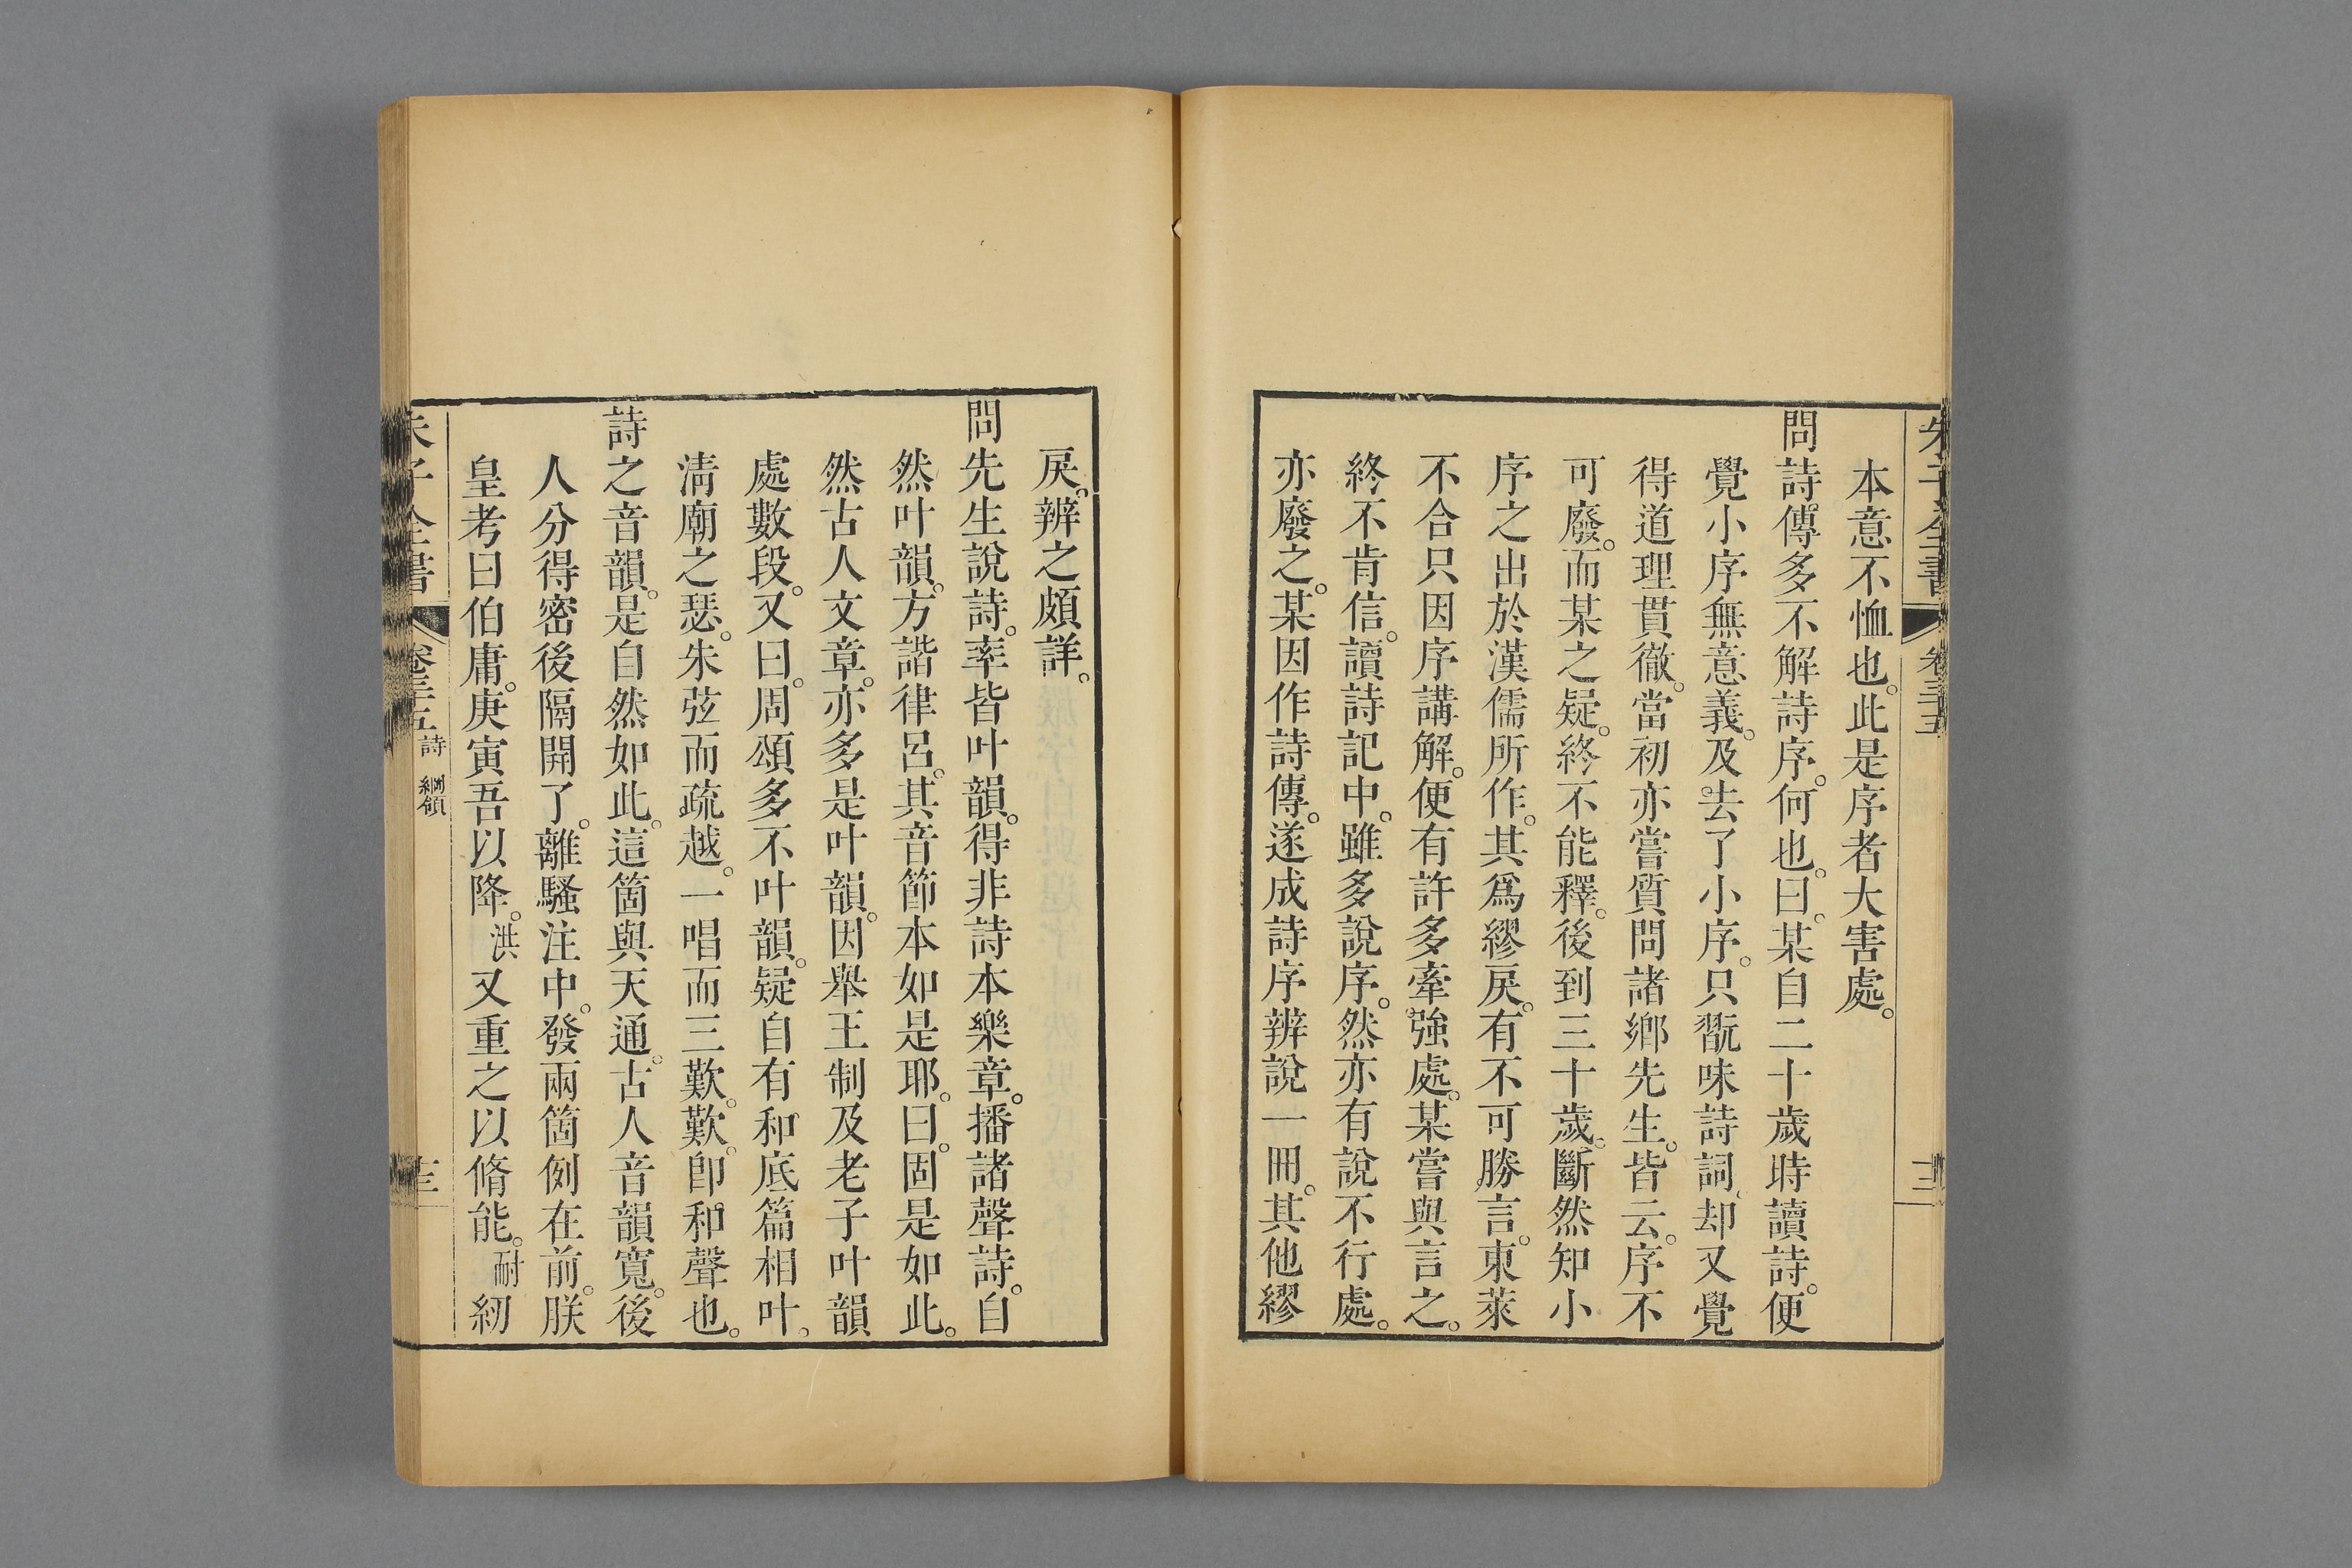 朱子全書 卷三十五
本意不恤也。此是序者大害處。
問詩傳多不解詩序。何也。曰。某自二十歲時讀詩。便
覺小序無意義。及去了小序。只翫味詩詞。却又覺
得道理貫徹。當初亦嘗質問諸鄉先生。皆云。序不
可廢。而某之疑。終不能釋。後到三十歲。斷然知小
序之出於漢儒所作。其爲繆戾。有不可勝言。東萊
不合只因序講解。便有許多牽強處。某嘗與言之。
終不肯信。讀詩記中。雖多說序。然亦有說不行處。
亦廢之。某因作詩傳。遂成詩序辨說一冊。其他繆
戾。辨之頗詳。
問先生說詩。率皆叶韻。得非詩本樂章。播諸聲詩。自
然叶韻。方諧律呂。其音節本如是耶。曰。固是如此。
然古人文章。亦多是叶韻。因舉王制及老子叶韻
處數段。又曰。周頌多不叶韻。疑自有和底篇相叶。
淸廟之瑟。朱弦而疏越。一唱而三歎。歎。卽和聲也。
詩之音韻。是自然如此。這箇與天通。古人音韻寬。後
人分得密後隔開了。離騷注中。發兩箇例在前。朕
皇考曰伯庸。庚寅吾以降。洪又重之以脩能。耐紉
朱子全書 卷三十五 詩 綱領